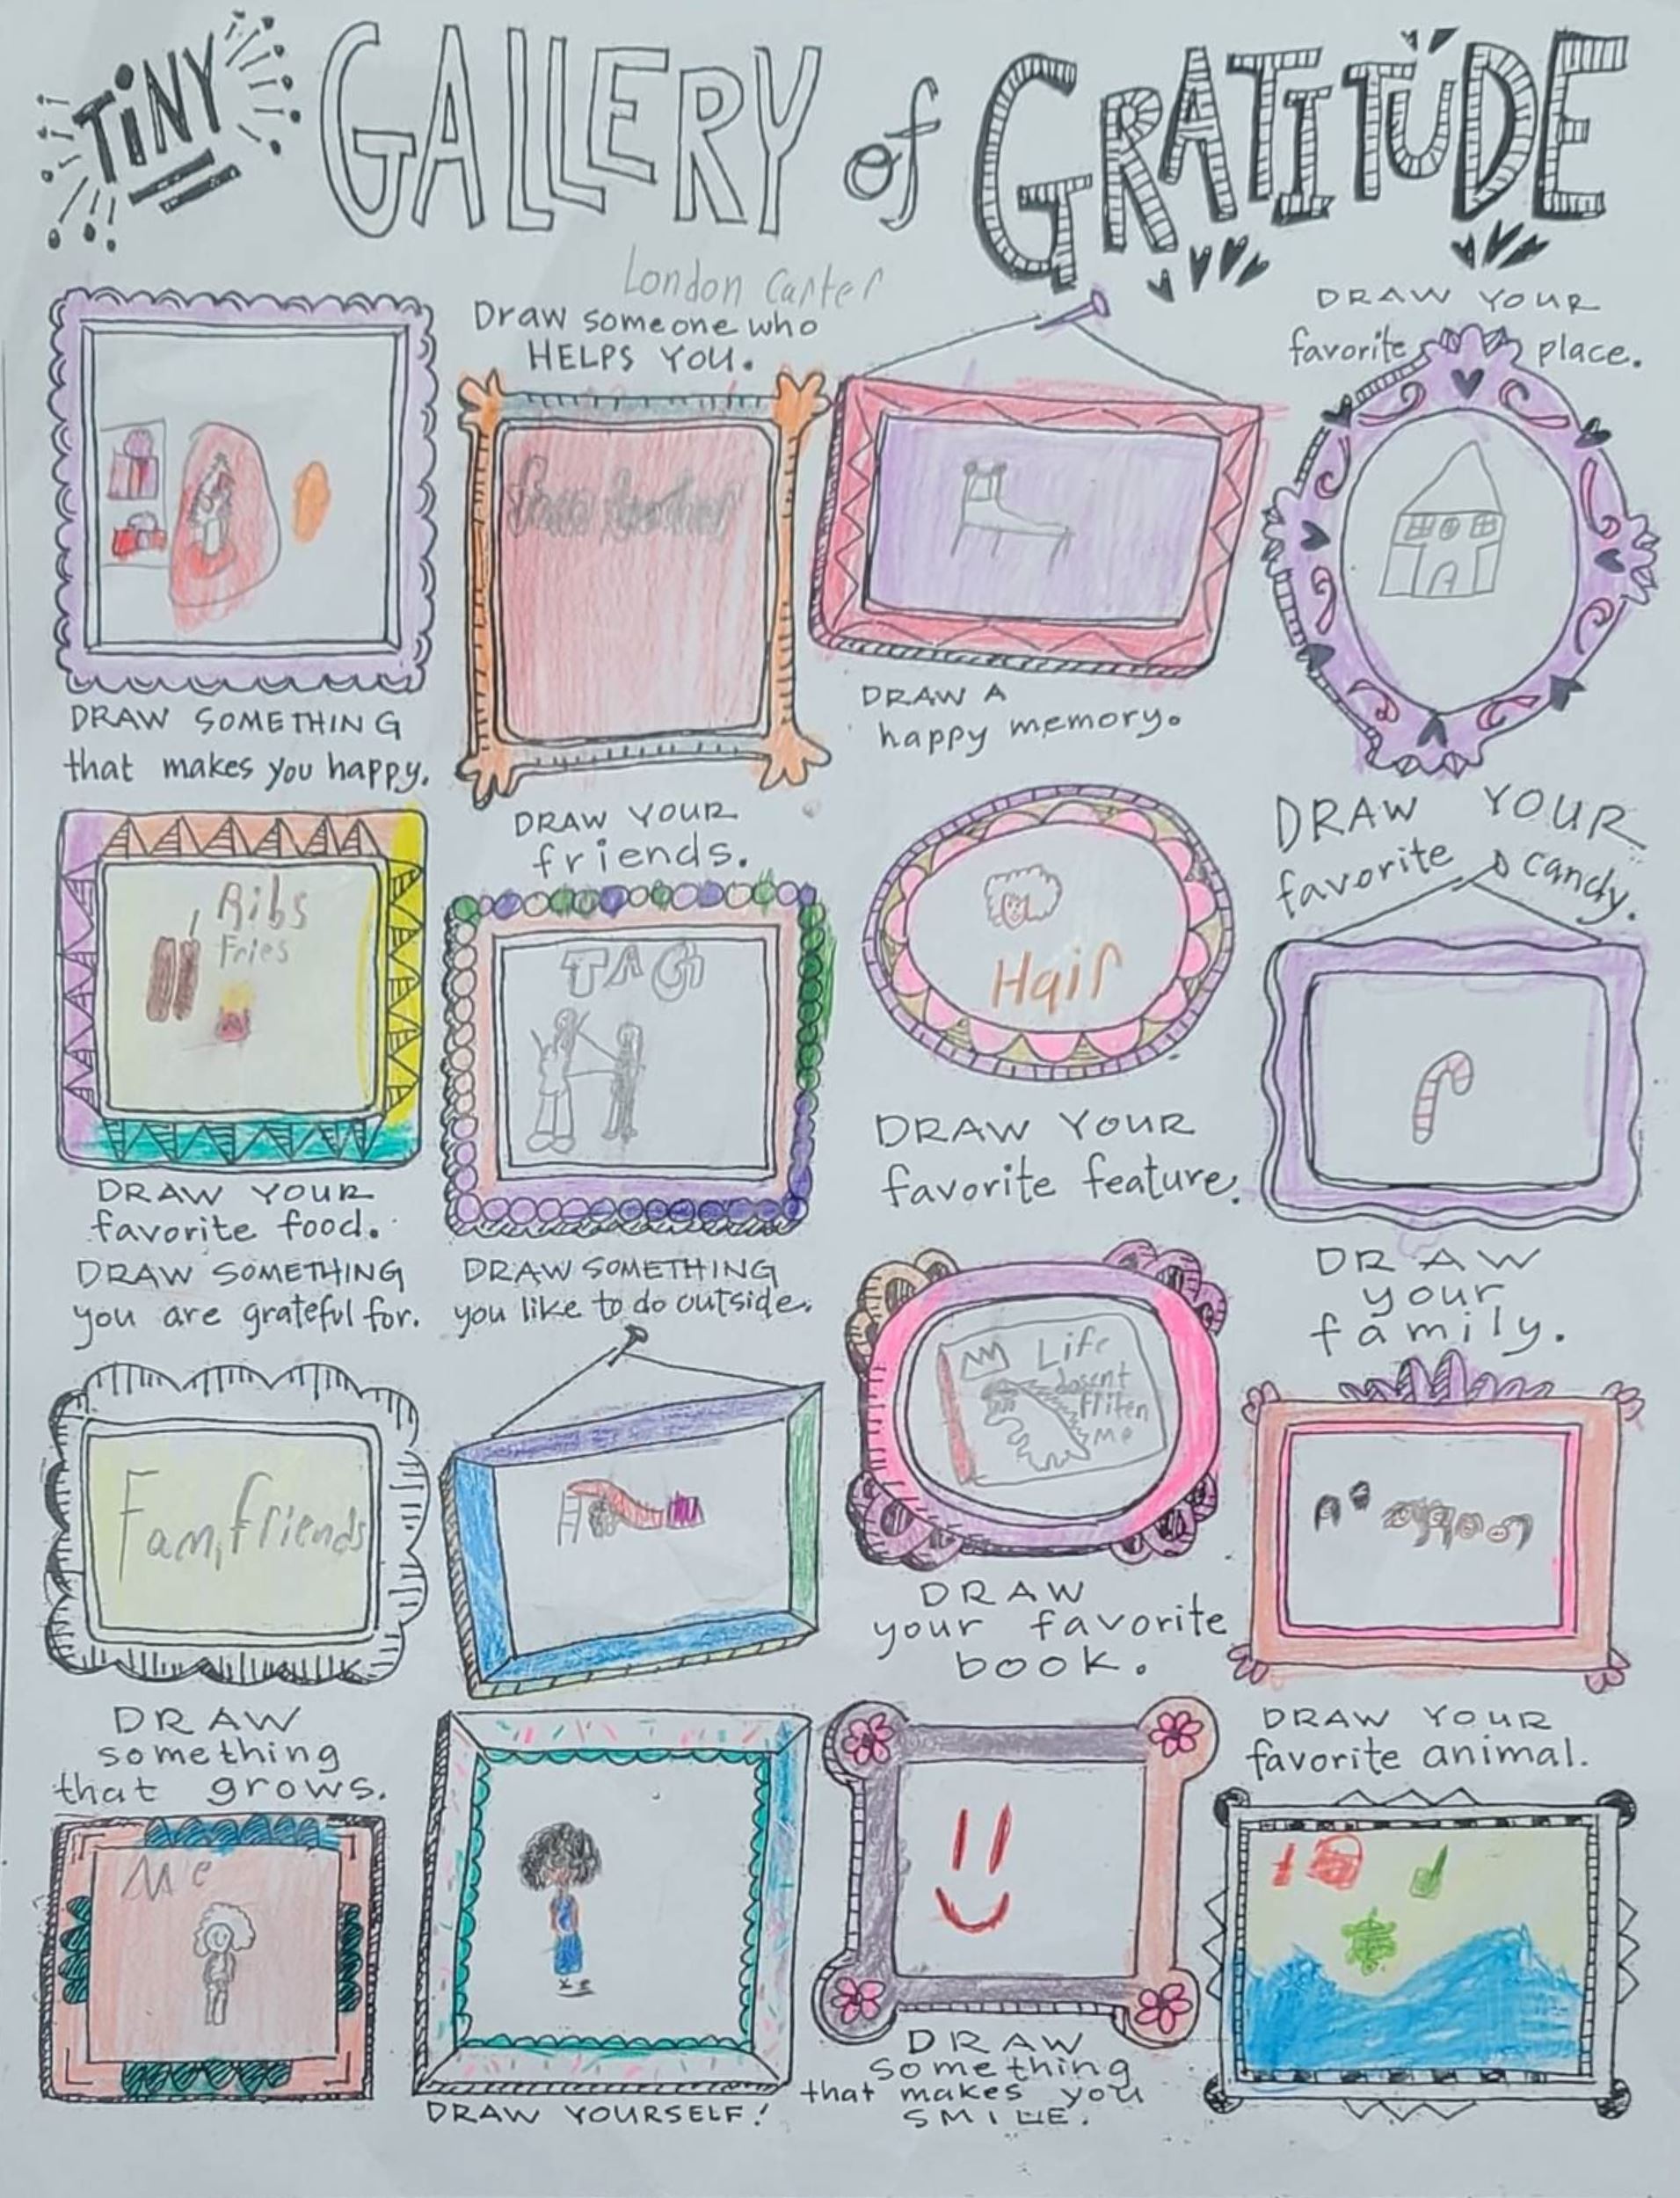 TiNY GALLERY of GRATITUDE
London Carter
Draw someone who
HELPS YOU.
DRAW YOUR
favorite place.
DRAW SOMETHING
that makes you happy.
DRAW A
happy memory.
DRAW YOUR
friends.
DRAW YOUR
favorite candy.
Ribs
Fries
TAG
Hair
DRAW YOUR
favorite food.
DRAW YOUR
favorite feature.
DRAW SOMETHING
you are grateful for.
DRAW SOMETHING
you like to do outside.
DRAW
your
family.
Life
dosent
me
Fam, friends
DRAW
your favorite
book.
DRAW
something
that grows.
DRAW YOUR
favorite animal.
Me
DRAW YOURSELF!
DRAW
something
that makes you
SMILE.